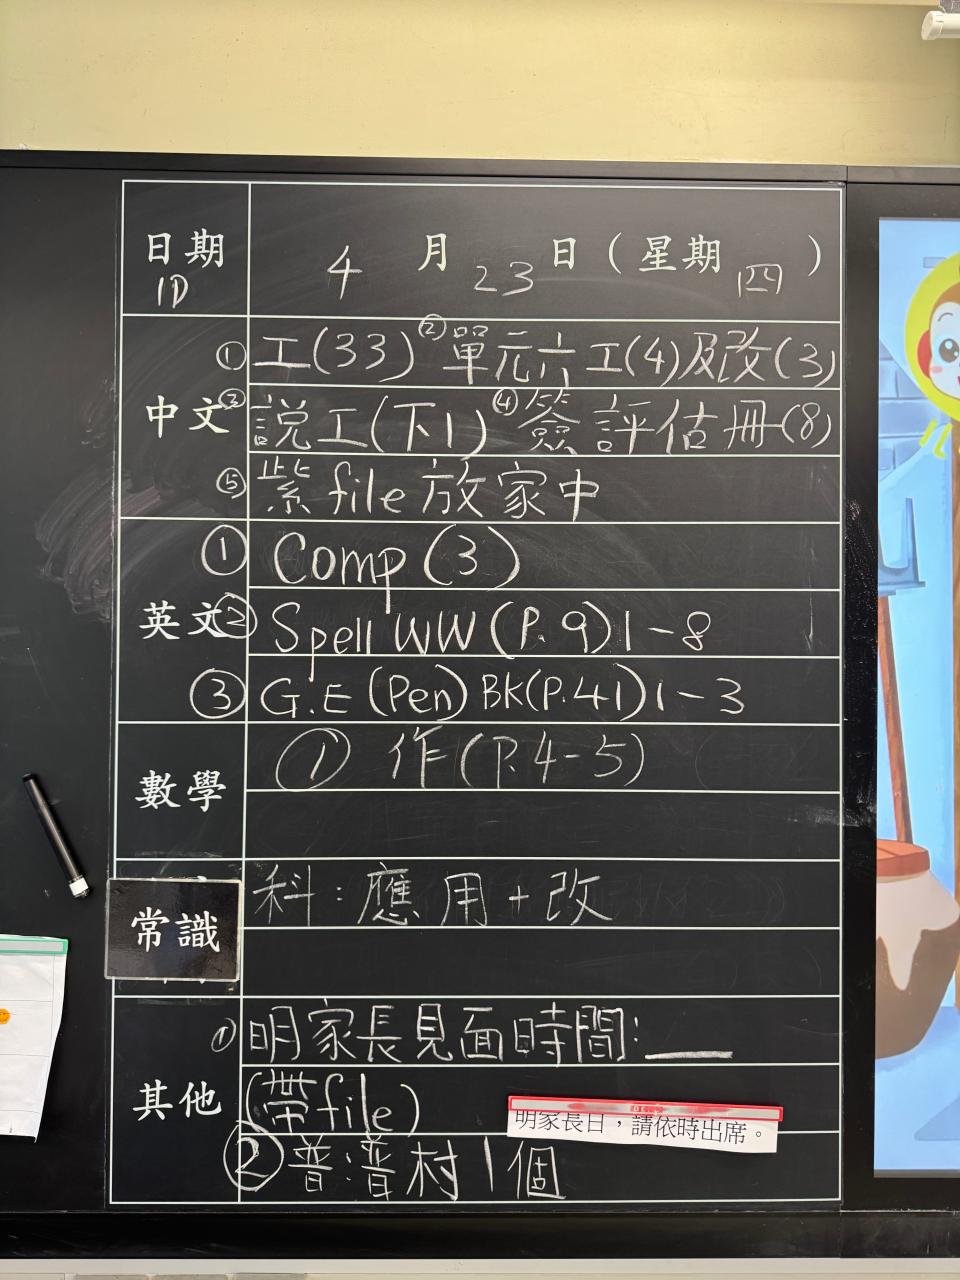 日期 4月23日(星期四)
1D
中文
① 工(33) ② 單元六工(4)及改(3)
③ 説工(下1) ④ 簽評估冊(8)
⑤ 紫file放家中
英文
① Comp (3)
② Spell WW (P.9) 1-8
③ G.E (Pen) BK(P.41) 1-3
數學
① 作(P.4-5)
常識
科:應用+改
其他
① 明家長見面時間:___
(帶file)
明家長日,請依時出席。
② 普普村1個